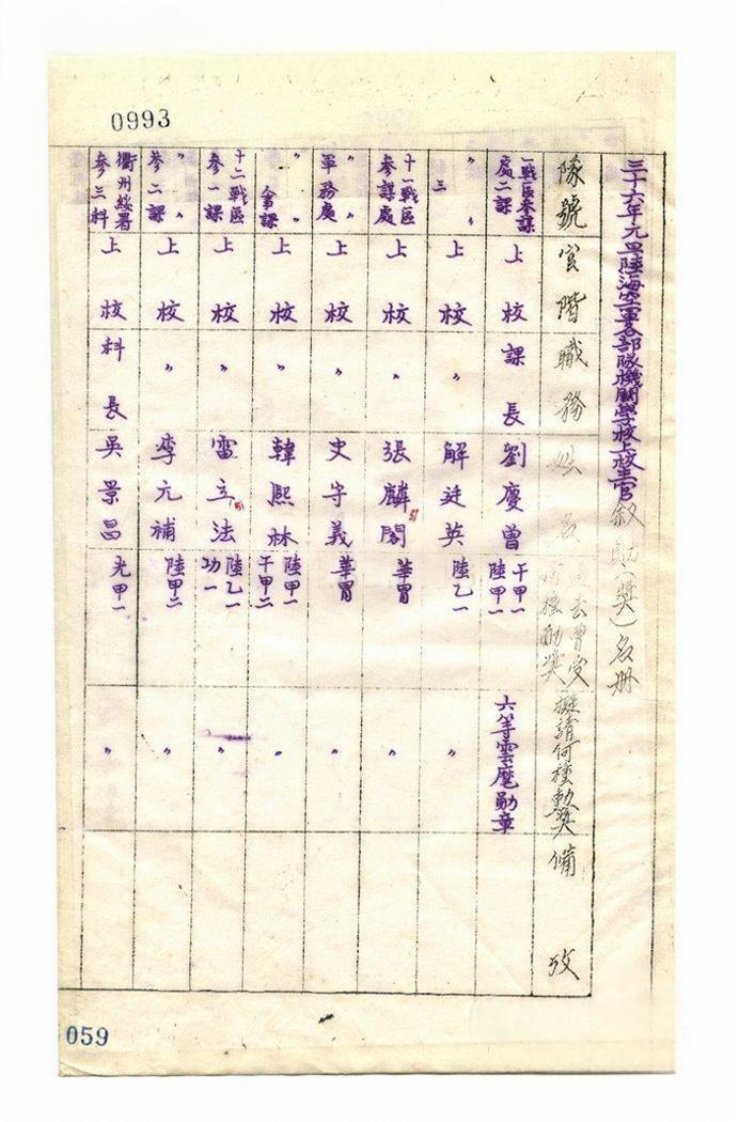 0993
三十六年元旦陸海空軍各部隊機關學校上校主官敘勛(獎)名册
隊號 官階 職務 姓名 過去曾受何種勛獎 擬請何種勲獎 備攷
一戰區參謀處二課 上校 課長 劉慶曾 干甲一 陸甲一 六等雲麾勛章
〃 三 〃 上校 〃 解廷英 陸乙一 〃
十一戰區參謀處 上校 〃 張麟閣 華胄 〃
〃 軍務處 上校 〃 史守義 華胄 〃
〃 課 上校 〃 韓熙林 陸甲一 干甲二 〃
十二戰區參一課 上校 〃 雷立法 陸乙一 功一 〃
〃 參二課 〃 上校 〃 李元補 陸甲二 〃
衢州綏署參三科 上校 科長 吳景昌 光甲一 〃
059